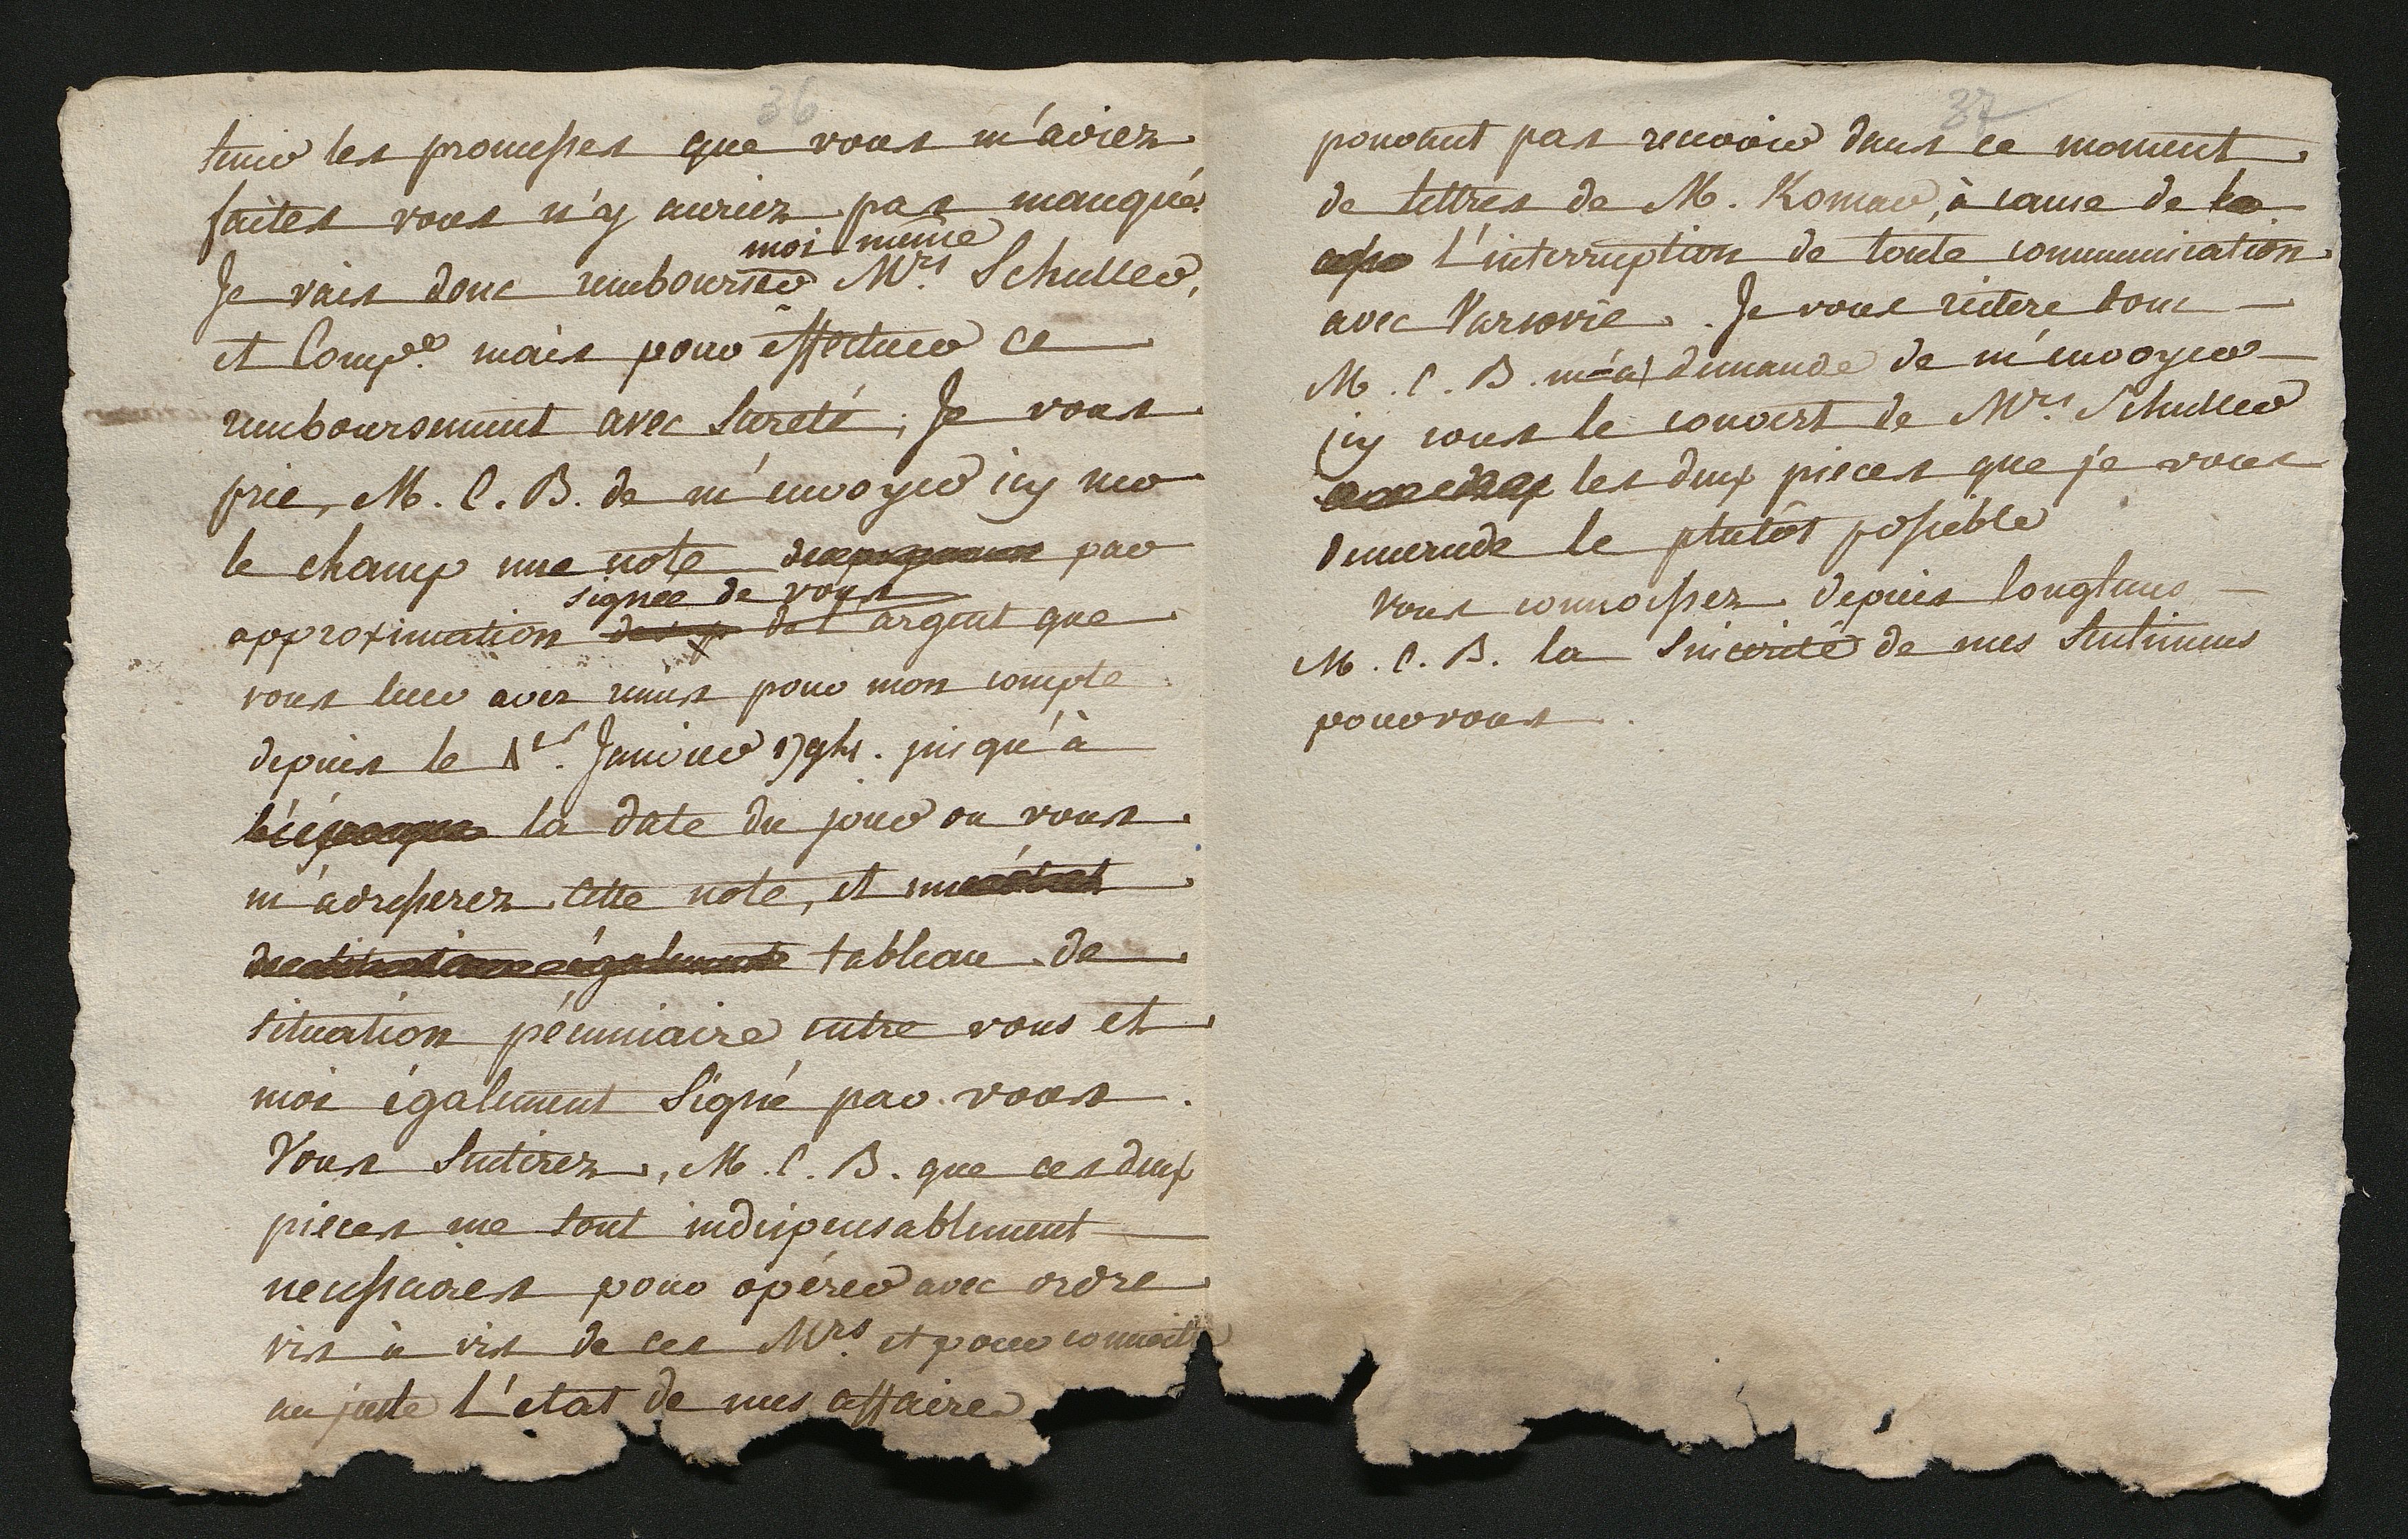 36
tenir les promesses que vous m'aviez
faites vous n'y auriez pas manqué.
moi même
Je vais donc rembourser Mrs. Schuller,
et Compe. mais pour effectuer ce
remboursement avec Sureté, Je vous
prie, M. C. B. de m'envoyer icy sur
le champ une note par
signée de vous
approximation de l'argent que
vous leur avez remis pour mon compte
depuis le 1er. Janvier 1794. jusqu'à
l'époque la date du jour ou vous
m'adresserez cette note, et un état
de situation également tableau de
situation pécuniaire entre vous et
moi également Signé par vous.
Vous Sentirez, M. C. B. que ces deux
pieces me sont indispensablement
necessaires pour opérer avec ordre
vis à vis de ces Mrs. et pour connaitre
au juste l'etat de mes affaires
37
pouvant pas recevoir dans ce moment
de lettres de M. Komar, à cause de la
l'interruption de toute communication
avec Varsovie. Je vous réitere donc
M. C. B. ma demande de m'envoyer
icy sous le couvert de Mrs. Schuller
les deux pieces que je vous
demande le plutôt possible
Vous connoissez depuis longtems
M. C. B. la Sincerité de mes Sentimens
pour vous.